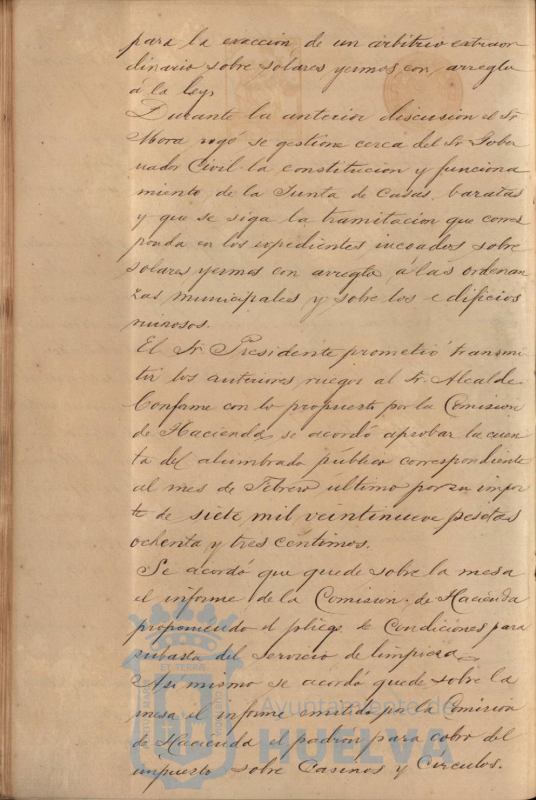 para la exaccion de un arbitrio extraor
dinario sobre solares yermos con arreglo
á la ley.
Durante la anterior discusion el Sr
Mora rogó se gestione cerca del Sr Gober
nador Civil la constitucion y funciona
miento de la Junta de Casas baratas
y que se siga la tramitacion que corres
ponda en los expedientes incoados sobre
solares yermos con arreglo á las ordenan
zas municipales y sobre los edificios
ruinosos.
El Sr Presidente prometió transmi
tir los anteriores ruegos al Sr. Alcalde.
Conforme con lo propuesto por la Comision
de Hacienda se acordó aprobar la cuen
ta del alumbrado público correspondiente
al mes de Febrero último por su impor
te de siete mil veintinueve pesetas
ochenta y tres centimos.
Se acordó que quede sobre la mesa
el informe de la Comision de Hacienda
proponiendo el pliego de Condiciones para
subasta del servicio de limpieza
Asi mismo se acordó quede sobre la
mesa el informe emitido por la Comision
de Hacienda el padron para cobro del
impuesto sobre Casinos y Circulos.
Ayuntamiento de
HUELVA